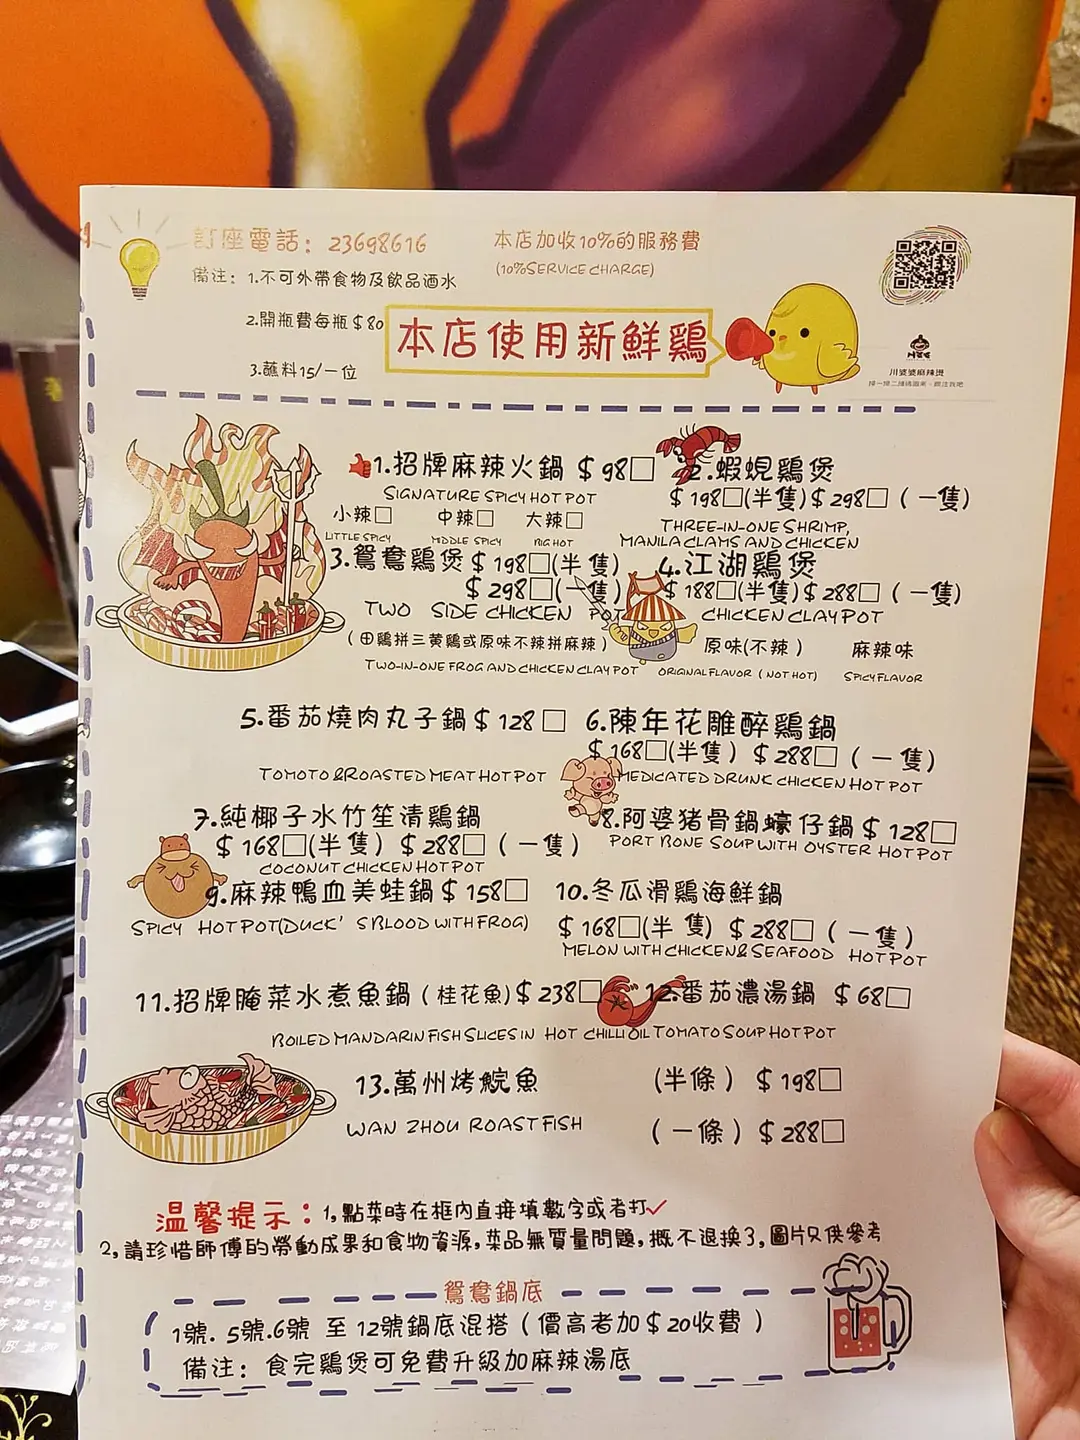 訂座電話：23698616
本店加收10%的服務費
(10% SERVICE CHARGE)
備注：1.不可外帶食物及飲品酒水
2.開瓶費每瓶$80
3.蘸料15/一位
本店使用新鮮鷄
川婆婆麻辣燙
1.招牌麻辣火鍋 $98□
SIGNATURE SPICY HOT POT
小辣□ 中辣□ 大辣□
LITTLE SPICY MDDLE SPICY BIG HOT
2.蝦蜆鷄煲
$198□(半隻)$298□(一隻)
THREE-IN-ONE SHRIMP,
MANILA CLAMS AND CHICKEN
3.鴛鴦鷄煲 $198□(半隻)
$298□(一隻)
TWO SIDE CHICKEN POT
(田鷄拼三黃鷄或原味不辣拼麻辣)
TWO-IN-ONE FROG AND CHICKEN CLAY POT
4.江湖鷄煲
$188□(半隻)$288□(一隻)
CHICKEN CLAY POT
原味(不辣) 麻辣味
ORIGINAL FLAVOR (NOT HOT) SPICY FLAVOR
5.番茄燒肉丸子鍋 $128□
TOMOTO & ROASTED MEAT HOT POT
6.陳年花雕醉鷄鍋
$168□(半隻) $288□(一隻)
MEDICATED DRUNK CHICKEN HOT POT
7.純椰子水竹笙清鷄鍋
$168□(半隻) $288□(一隻)
COCONUT CHICKEN HOT POT
8.阿婆猪骨鍋蠔仔鍋 $128□
PORT BONE SOUP WITH OYSTER HOT POT
9.麻辣鴨血美蛙鍋 $158□
SPICY HOT POT(DUCK' S BLOOD WITH FROG)
10.冬瓜滑鷄海鮮鍋
$168□(半隻) $288□(一隻)
MELON WITH CHICKEN & SEAFOOD HOT POT
11.招牌腌菜水煮魚鍋(桂花魚)$238□
12.番茄濃湯鍋 $68□
BOILED MANDARIN FISH SLICES IN HOT CHILLI OIL TOMATO SOUP HOT POT
13.萬州烤鯇魚 (半條) $198□
WAN ZHOU ROAST FISH (一條) $288□
温馨提示：1,點菜時在框內直接填數字或者打✓
2,請珍惜師傅的勞動成果和食物資源,菜品無質量問題,概不退換3,圖片只供參考
鴛鴦鍋底
1號. 5號.6號 至 12號鍋底混搭(價高者加$20收費)
備注：食完鷄煲可免費升級加麻辣湯底